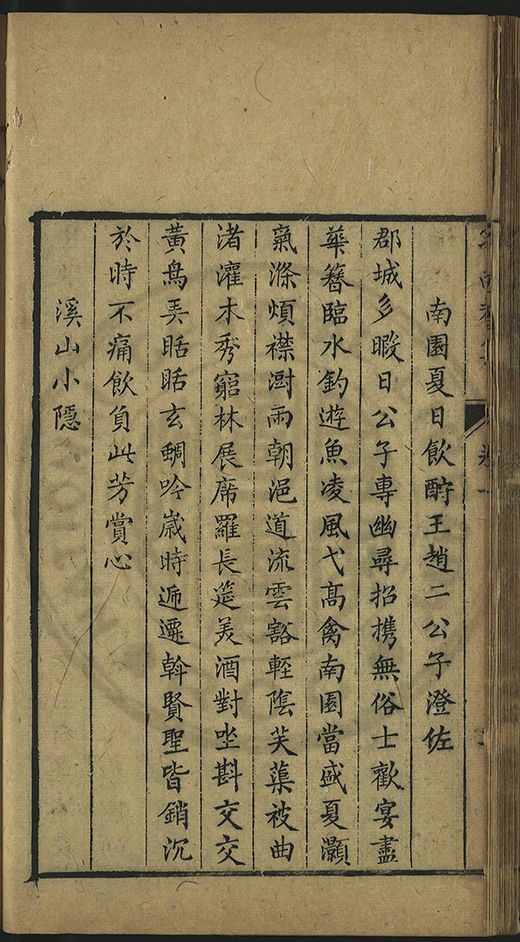 南園夏日飲酧王趙二公子澄佐
郡城多暇日公子專幽尋招携無俗士歡宴盡
華簪臨水釣遊魚凌風弋高禽南園當盛夏灝
氣滌煩襟澍雨朝浥道流雲豁輕陰芙蕖被曲
渚灌木秀窮林展席羅長筵美酒對坐斟交交
黃鳥弄㫝㫝玄蜩吟歲時遞遷斡賢聖皆銷沉
於時不痛飲負此芳賞心
溪山小隱